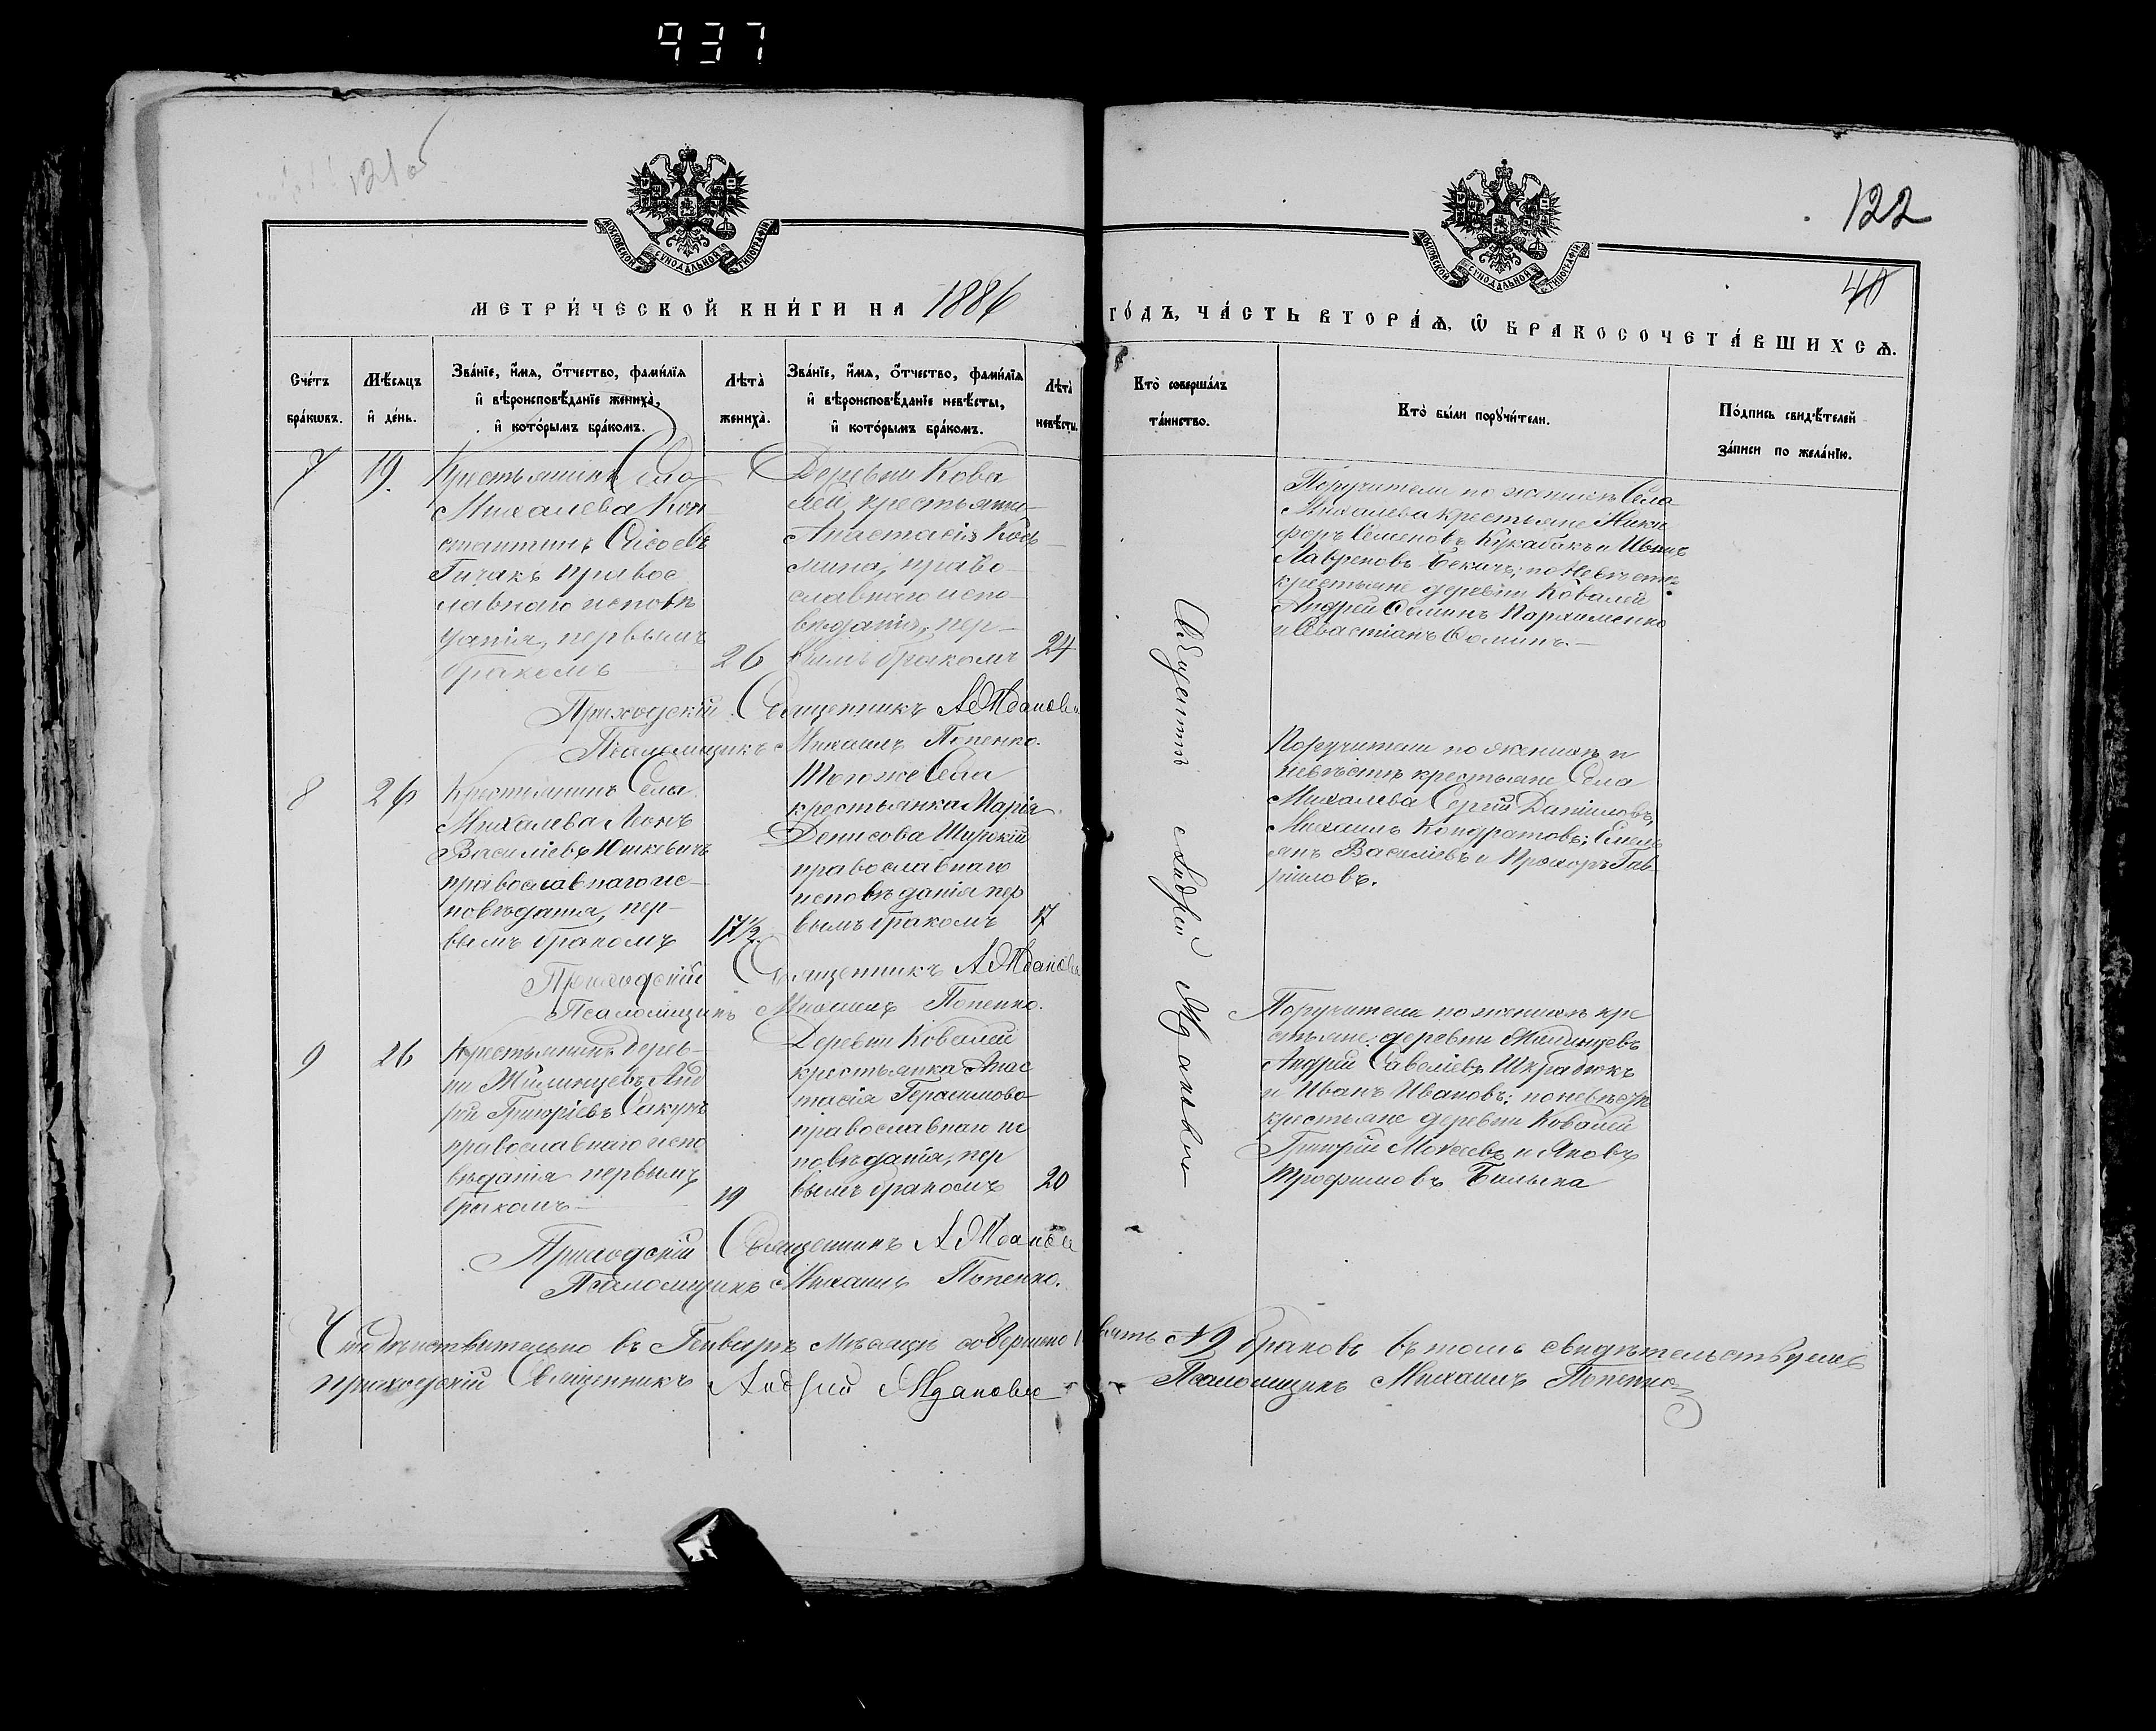 937
121 об
122
40
МОСКОВСКОЙ СѴНОДАЛЬНОЙ ТИПОГРАФІИ
МОСКОВСКОЙ СѴНОДАЛЬНОЙ ТИПОГРАФІИ
МЕТРИ́ЧЕСКОЙ КНИ́ГИ НА 1886 ГО́ДЪ, ЧА́СТЬ ВТОРА́Ѧ, Ѽ БРАКОСОЧЕТА́ВШИХСѦ.
Сче́тъ
бра́кѡвъ.
Мѣ́сяцъ
и҆ де́нь.
Зва́нїе, и҆́мѧ, ѻ҆́тчество, фами́лїѧ
и҆ вѣроисповѣ́данїе жениха̀,
и҆ кото́рымъ бра́комъ.
Лѣ́та
жениха̀.
Зва́нїе, и҆́мѧ, ѻ҆́тчество, фами́лїѧ
и҆ вѣроисповѣ́данїе невѣ́сты,
и҆ кото́рымъ бра́комъ.
Лѣ́та
невѣ́сты.
Кто̀ соверша́лъ
та́инство.
Кто̀ бы́ли порꙋчи́тели.
По́дпись свидѣ́телей
за́писи по жела́нїю.
7
19.
Крестьянинъ Села
Михалева Кон-
стантинъ Сисоевъ
Гичакъ правос
лавнаго исповѣ
данія, первымъ
бракомъ
26
Деревни Кова
лей крестьянк
Анастасія Кось
мина, право-
славнаго испо-
вѣданія, пер-
вымъ бракомъ
24
Поручители по женихѣ Села
Михалева крестьяне Ники
форъ Семеновъ и Иванъ
Лавреновъ Бекачъ; по невѣстѣ
крестьяне деревни Ковалей
Андрей Ѳоминъ Пархоменко
и Севастіанъ Ѳоминъ.
Приходскій Священникъ А Жданович
Псаломщикъ Михаилъ Попенко.
Священникъ Андрей Жданович
8
26
Крестьянинъ Села
Михалева Леонъ
Василіевъ Юшкевичъ
православнаго ис-
повѣданія, пер-
вымъ бракомъ
17½
Того же Села
крестьянка Марія
Денисова
православнаго
исповѣданія пер
вымъ бракомъ
17
Поручители по женихѣ и
невѣстѣ крестьяне Села
Михалева Сергій Даниловъ,
Михаилъ Кондратовъ; Емель
янъ Василіевъ и Прохоръ Гав-
риловъ.
Приходскій Священникъ А Жданович
Псаломщикъ Михаилъ Попенко.
9
26
Крестьянинъ дерев-
ни Жилинцевъ Анд
рей Григоріевъ Сакунъ
православнаго испо
вѣданія первымъ
бракомъ
19
Деревни Ковалей
крестьянка Анас
тасія Герасимова
православнаго ис
повѣданія, пер
вымъ бракомъ
20
Поручители по женихѣ кре
стьяне: деревни Жилинцевъ
Андрей Савеліевъ Шкрабюкъ
и Иванъ Ивановъ; по невѣстѣ
крестьяне деревни Ковалей
Григорій Моисеевъ и Яковъ
Трофимовъ Билыка
Приходскій Священникъ А Жданович
Псаломщикъ Михаилъ Попенко.
Что дѣйствительно въ Генварѣ мѣсяцѣ совершено девять № 9 браковъ въ томъ свидѣтельствуемъ
приходскій Священникъ Андрей Жданович
Псаломщикъ Михаилъ Попенко